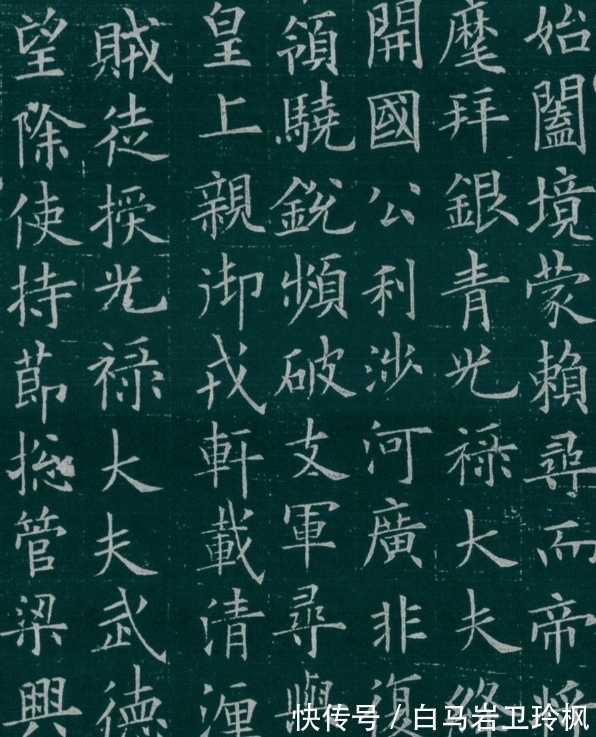 始闔境蒙賴尋而帝
麾拜銀青光祿大夫
開國公利涉河廣非復
領驍銳頻破支軍尋與
皇上親御戎軒載清
賊徒授光祿大夫武德
望除使持節捴管梁興
快传号 / 白马岩卫玲枫